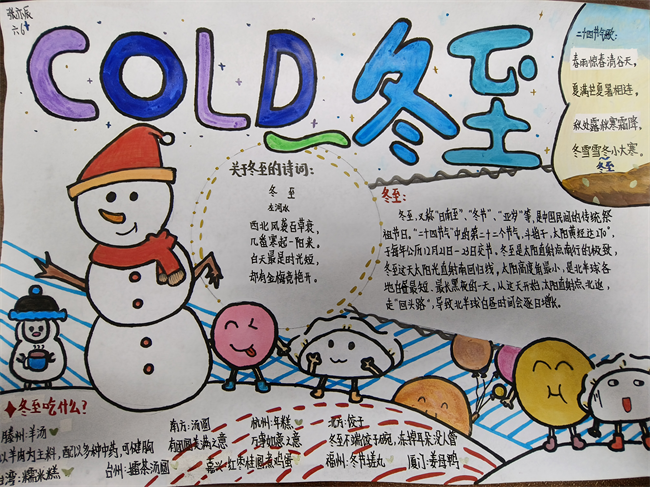 张亦辰
六6
COLD 冬至
二十四节气歌:
春雨惊春清谷天,
夏满芒夏暑相连,
秋处露秋寒霜降,
冬雪雪冬小大寒。
冬至
关于冬至的诗词:
冬 至
左河水
西北风袭百草衰,
几番寒起一阳来,
白天最是时光短,
却有金梅竞艳开。
冬至:
冬至,又称"日南至"、"冬节"、"亚岁"等,是中国民间的传统祭
祖节日。"二十四节气"中的第二十二个节气,斗指子,太阳黄经达270°,
于每年公历12月21日-23日交节。冬至是太阳直射点南行的极致,
冬至这天太阳光直射南回归线,太阳高度角最小,是北半球各
地白昼最短、最长黑夜的一天,从这天开始,太阳直射点北返,
走"回头路",导致北半球白昼时间会逐日增长。
冬至吃什么?
滕州:羊汤
以羊肉为主料,配以多种中药,可健胸
台湾:糯米糕
南方:汤圆
有团圆美满之意
台州:擂茶汤圆
杭州:年糕
万事如意之意
嘉兴:红枣桂圆煮鸡蛋
北方:饺子
冬至不端饺子碗,冻掉耳朵没人管
福州:冬节搓丸
厦门:姜母鸭